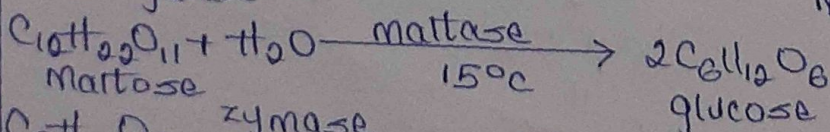 C12H22O11 + H2O maltase → 2C6H12O6
Maltose 15°C glucose
zymase